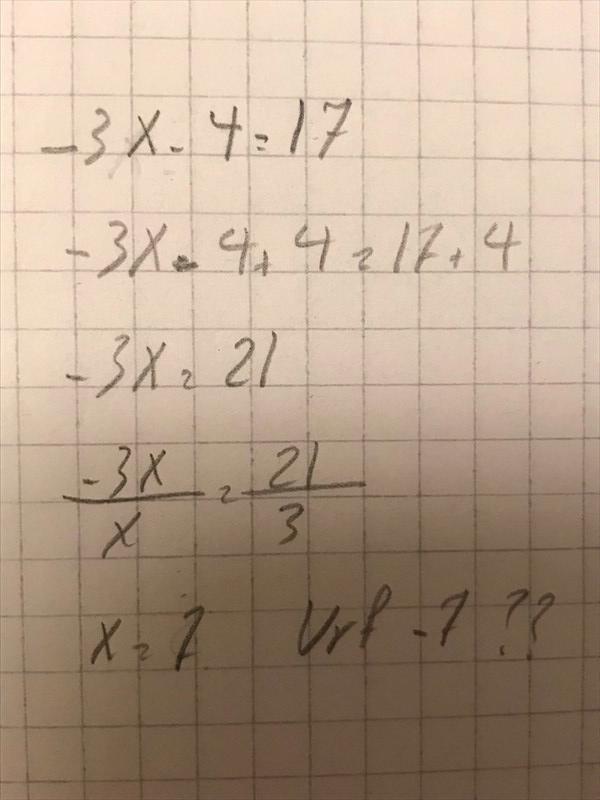 -3x - 4 = 17
-3x - 4 + 4 = 17 + 4
-3x = 21
-3x/x = 21/3
x = 7 Vrf -7 ??